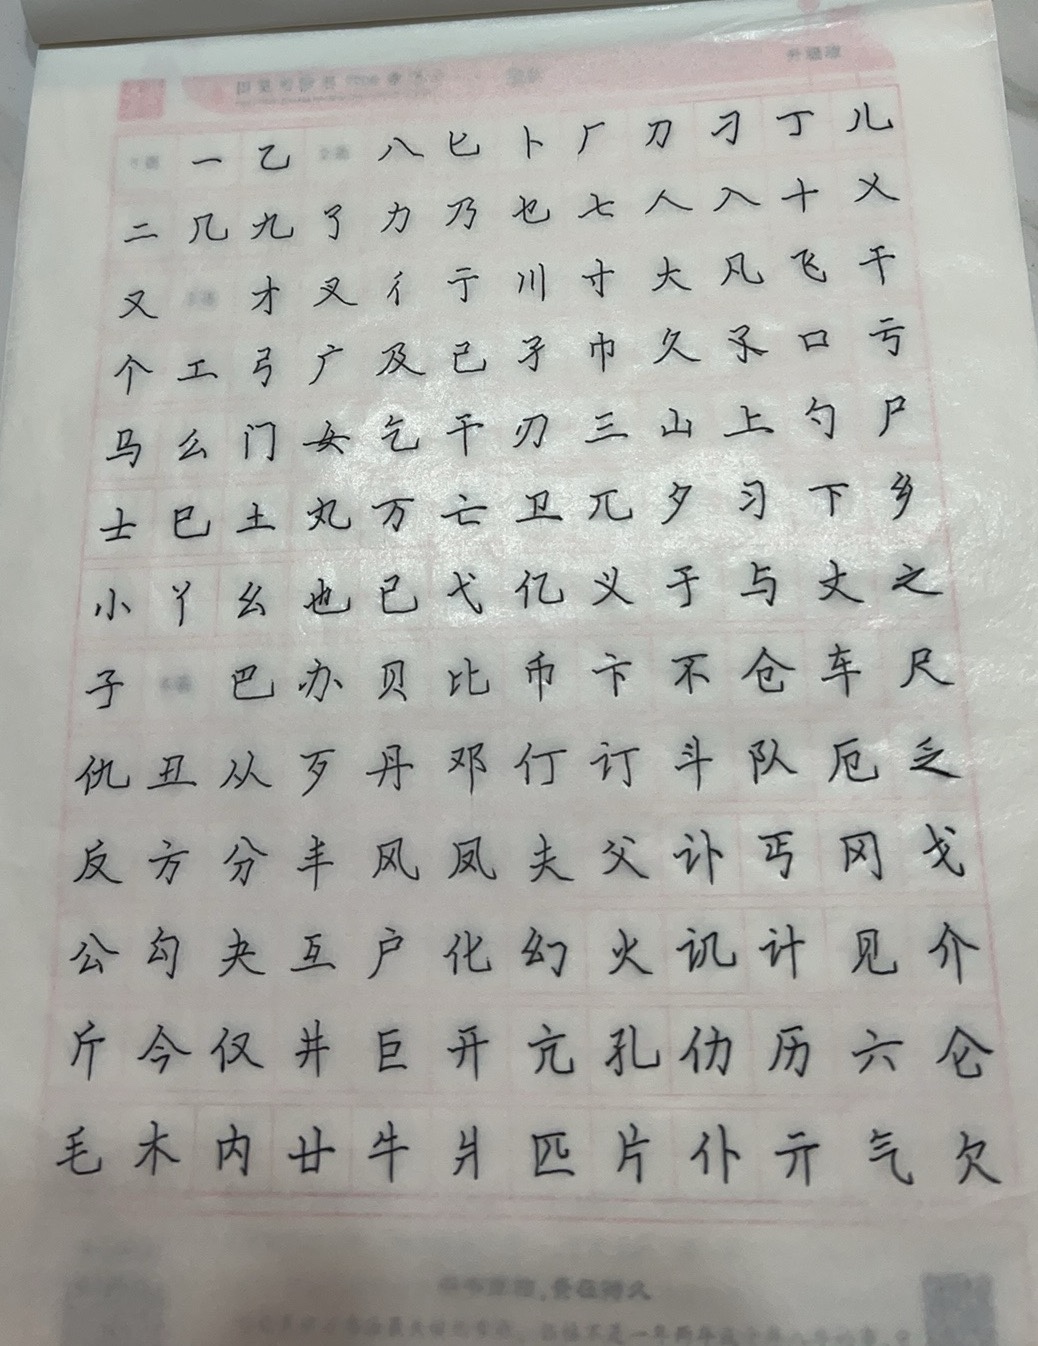 一 乙 八 匕 卜 厂 刀 刁 丁 儿
二 几 九 了 力 乃 也 七 人 入 十 乂
又 才 叉 彳 亍 川 寸 大 凡 飞 干
个 工 弓 广 及 己 孑 巾 久 孓 口 亏
马 么 门 女 乞 千 刃 三 山 上 勺 尸
士 巳 土 丸 万 亡 卫 兀 夕 习 下 乡
小 丫 幺 也 已 弋 亿 义 于 与 丈 之
子 巴 办 贝 比 币 卞 不 仓 车 尺
仇 丑 从 歹 丹 邓 仃 订 斗 队 厄 乏
反 方 分 丰 风 凤 夫 父 讣 丐 冈 戈
公 勾 夬 互 户 化 幻 火 讥 计 见 介
斤 今 仅 井 巨 开 亢 孔 仂 历 六 仑
毛 木 内 廿 牛 爿 匹 片 仆 亓 气 欠